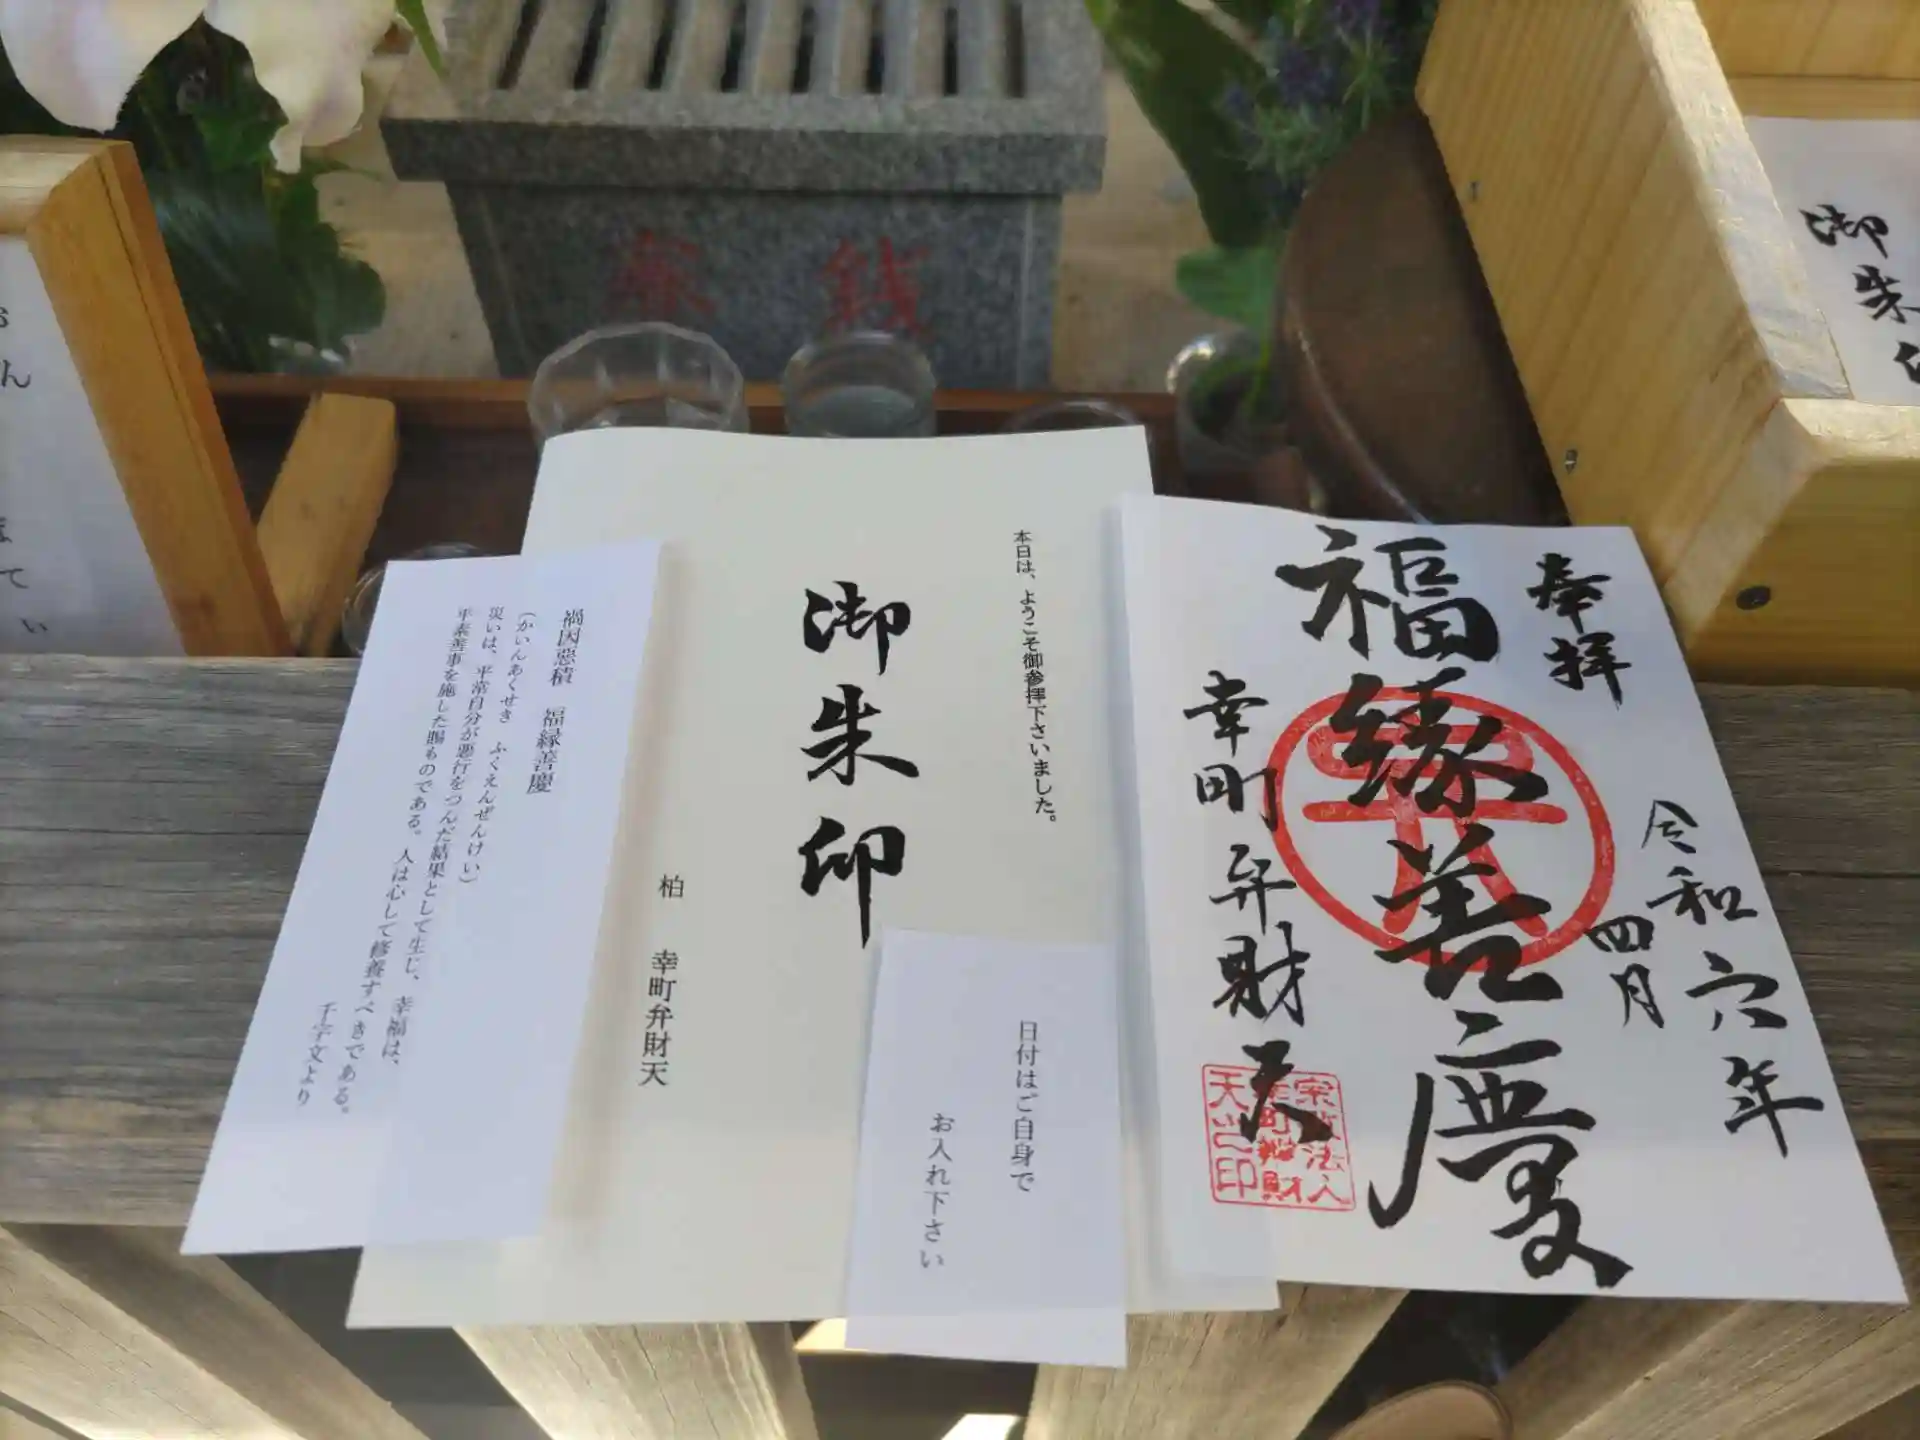 賽銭
御朱印
本日は、ようこそ御参拝下さいました。
御朱印
柏 幸町弁財天
禍因惡積 福縁善慶
(かいんあくせき ふくえんぜんけい)
災いは、平常自分が悪行をつんだ結果として生じ、幸福は、
平素善事を施した賜ものである。人は心して修養すべきである。
千字文より
日付はご自身で
お入れ下さい
奉拝
令和六年
四月
福縁善慶
幸町弁財天
宗教法人
幸町辨財
天之印